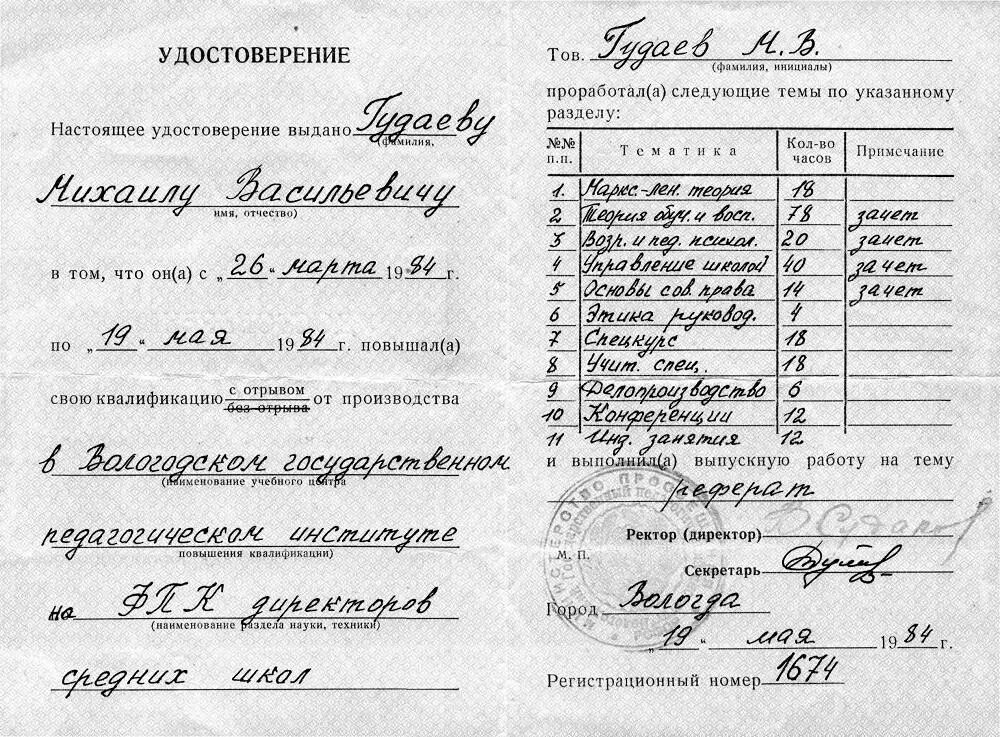 УДОСТОВЕРЕНИЕ
Настоящее удостоверение выдано Гудаеву
(фамилия,
Михаилу Васильевичу
имя, отчество)
в том, что он(а) с „26“ марта 1984г.
по „19“ мая 1984г. повышал(а)
свою квалификацию с отрывом
без отрыва от производства
в Вологодском государственном
(наименование учебного центра
педагогическом институте
повышения квалификации)
на ФПК директоров
(наименование раздела науки, техники)
средних школ
Тов. Гудаев М. В.
(фамилия, инициалы)
проработал(а) следующие темы по указанному
разделу:
№№ п.п. Тематика Кол-во часов Примечание
1. Маркс.-лен. теория 18
2 Теория обуч. и восп. 78 зачет
3 Возр. и пед. психол. 20 зачет
4 Управление школой 40 зачет
5 Основы сов. права 14 зачет
6 Этика руковод. 4
7 Спецкурс 18
8 Учит. спец. 18
9 Делопроизводство 6
10 Конференции 12
11 Инд. занятия 12
и выполнил(а) выпускную работу на тему
реферат
Ректор (директор)
М. П.
Секретарь
Город Вологда
„19“ мая 1984г.
Регистрационный номер 1674